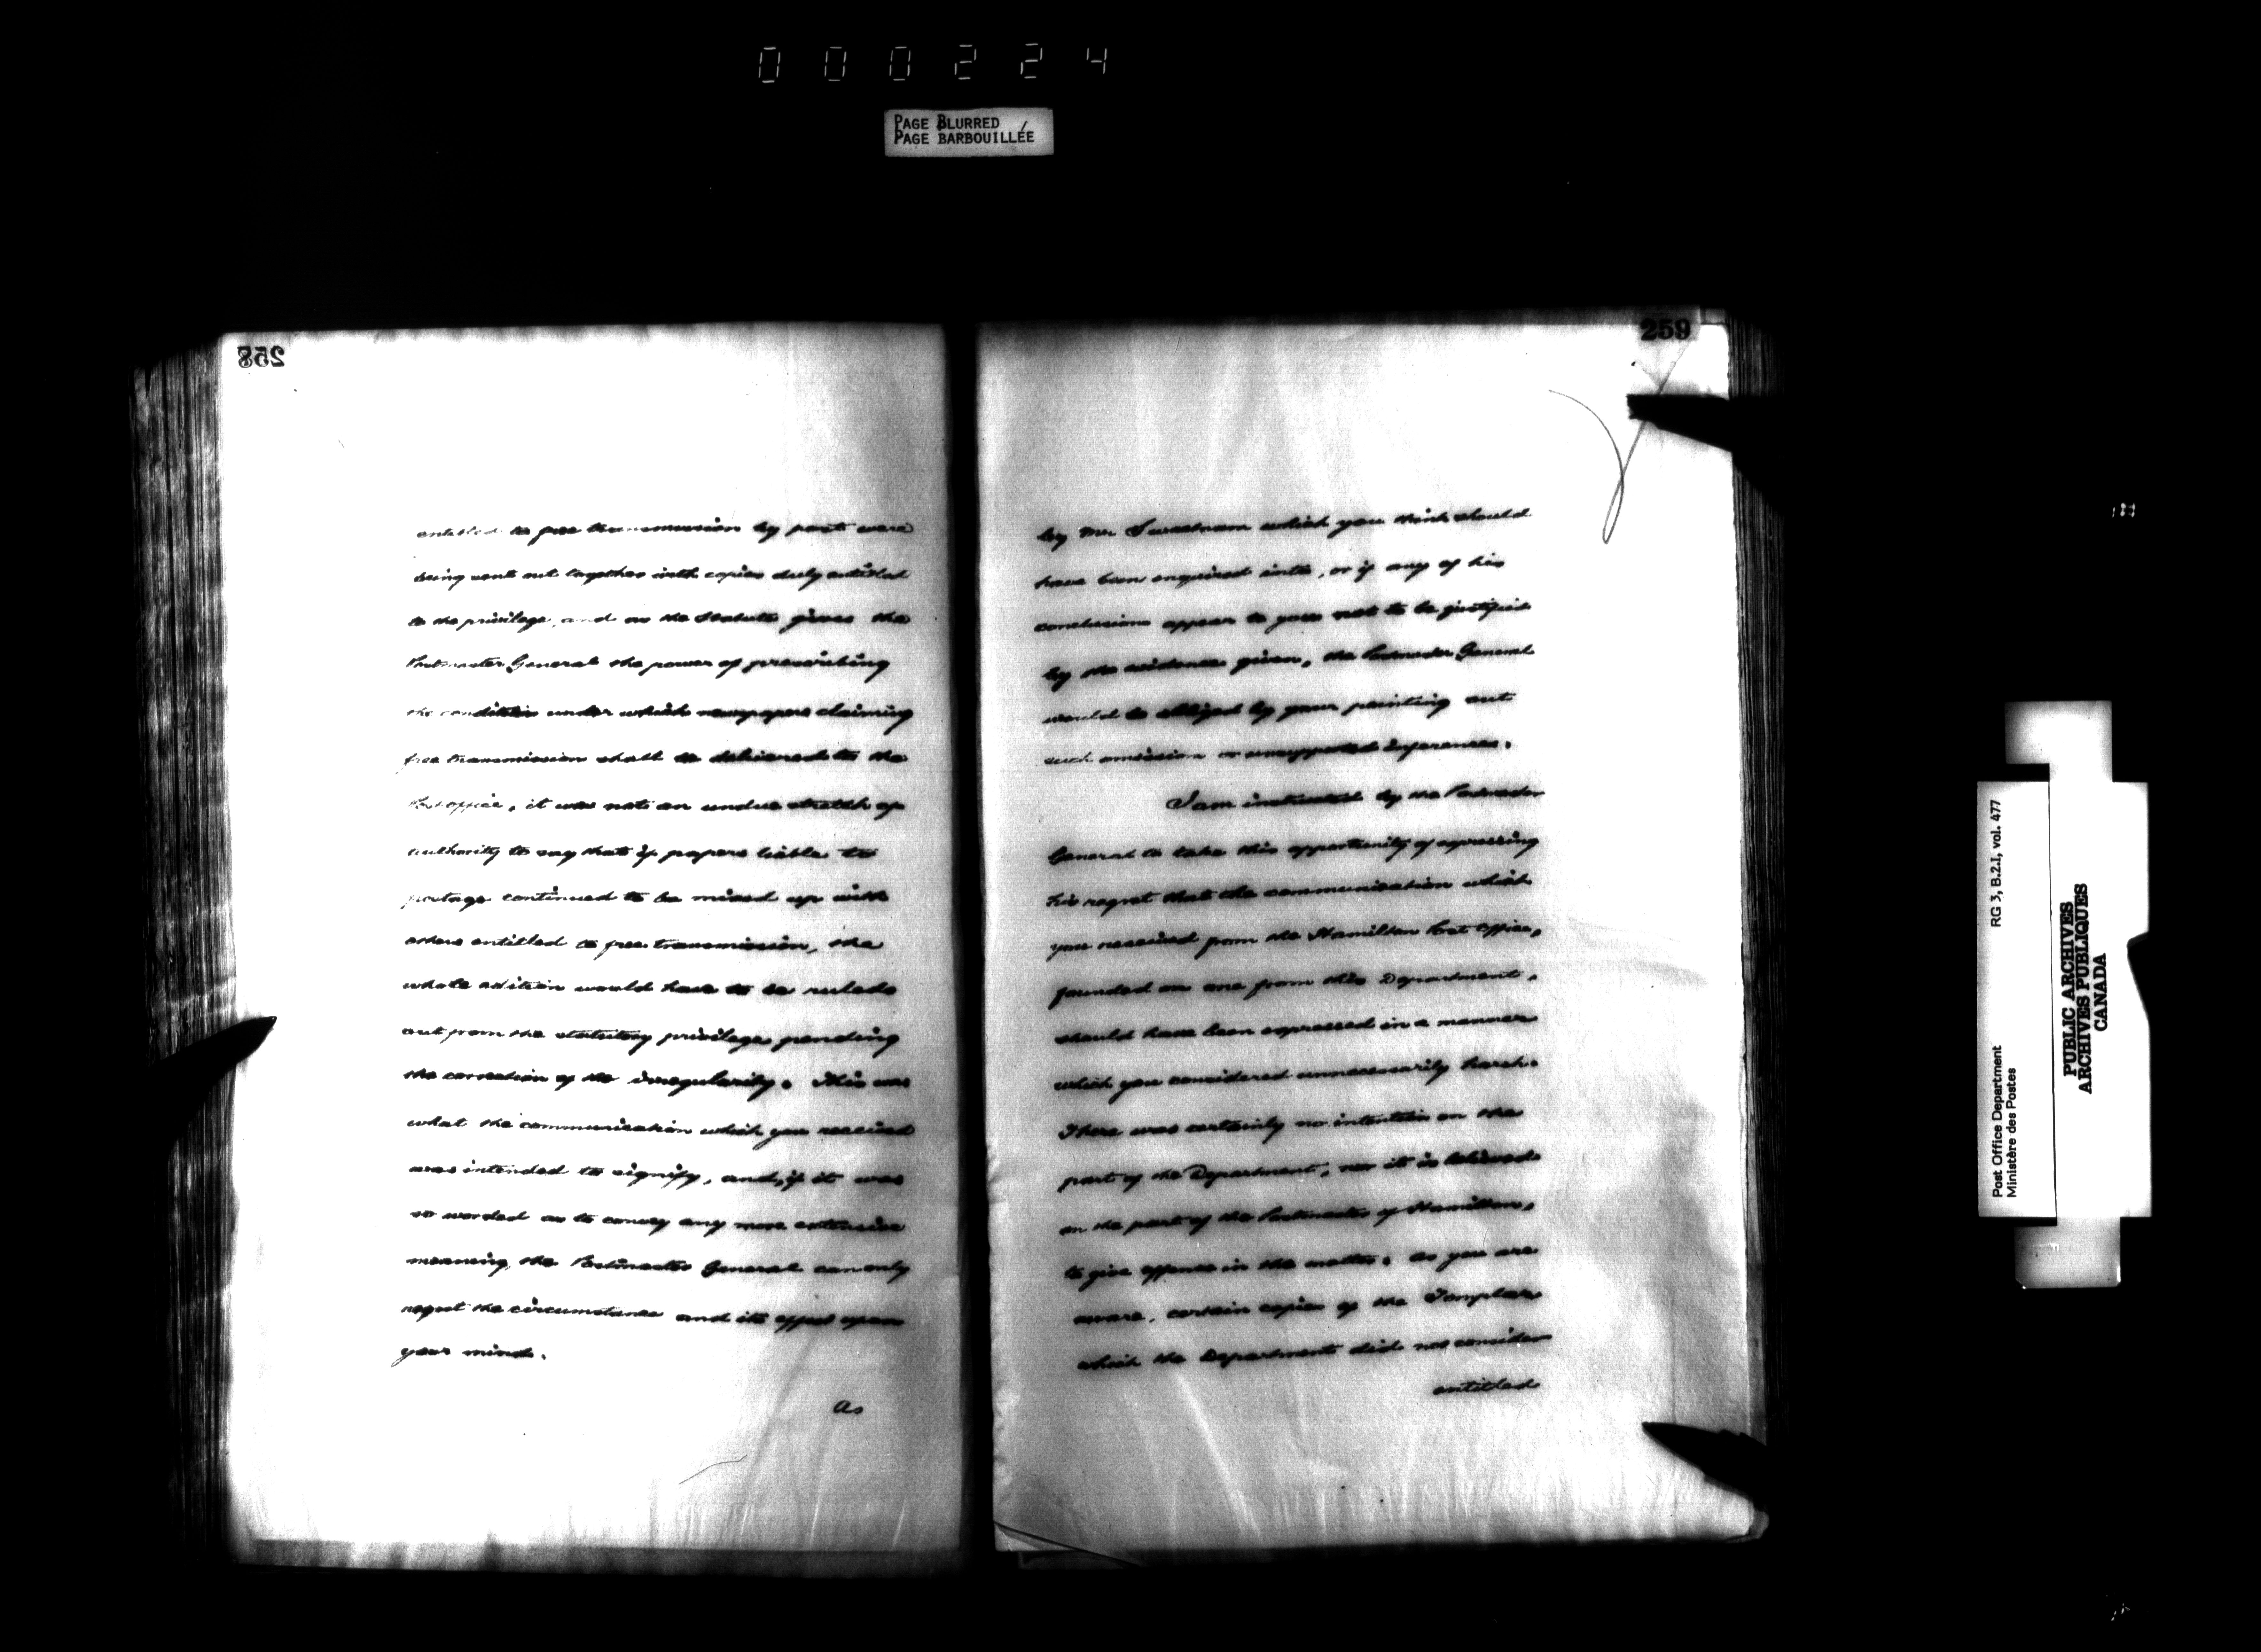 000224
PAGE BLURRED
PAGE BARBOUILLÉE
258
entitled to free transmission by post were
being sent out together with copies duly entitled
to the privilege, and as the Statute gives the
Postmaster General the power of prescribing
the condition under which newspapers claiming
free transmission shall be delivered to the
Post office, it was not an undue stretch of
authority to say that if papers liable to
postage continued to be mixed up with
others entitled to free transmission, the
whole edition would have to be ruled
out from the statutory privilege pending
the correction of the irregularity. This was
what the communication which you received
was intended to signify, and, if it was
so worded as to convey any more extensive
meaning, the Postmaster General can only
regret the circumstance and its effect upon
your mind.
As
259
by Mr. Sweetnam which you think should
have been enquired into, or if any of his
conclusions appear to you not to be justified
by the evidence given, the Postmaster General
would be obliged by your pointing out
such omission or unsupported inferences.
I am instructed by the Postmaster
General to take this opportunity of expressing
his regret that the communication which
you received from the Hamilton Post Office,
founded on one from this Department,
should have been expressed in a manner
which you considered unnecessarily harsh.
There was certainly no intention on the
part of the Department, nor it is believed
on the part of the Postmaster of Hamilton,
to give offence in the matter. As you are
aware, certain copies of the Templar
which the Department did not consider
entitled
Post Office Department
Ministère des Postes
RG 3, B.2.I, vol. 477
PUBLIC ARCHIVES
ARCHIVES PUBLIQUES
CANADA